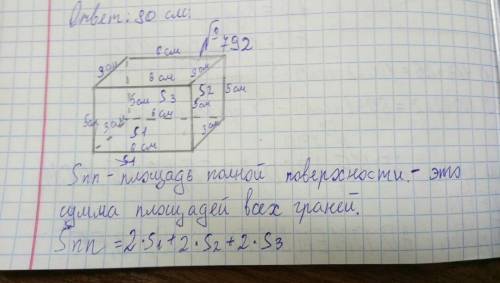 Ответ: 90 см.
№ 792
6 см
3 см
6 см
3 см
5 см
S3
S2
5 см
5 см
5 см
6 см
3 см
S1
3 см
6 см
S1
Sпп - площадь полной поверхности. - это
сумма площадей всех граней.
Sпп = 2·S1 + 2·S2 + 2·S3